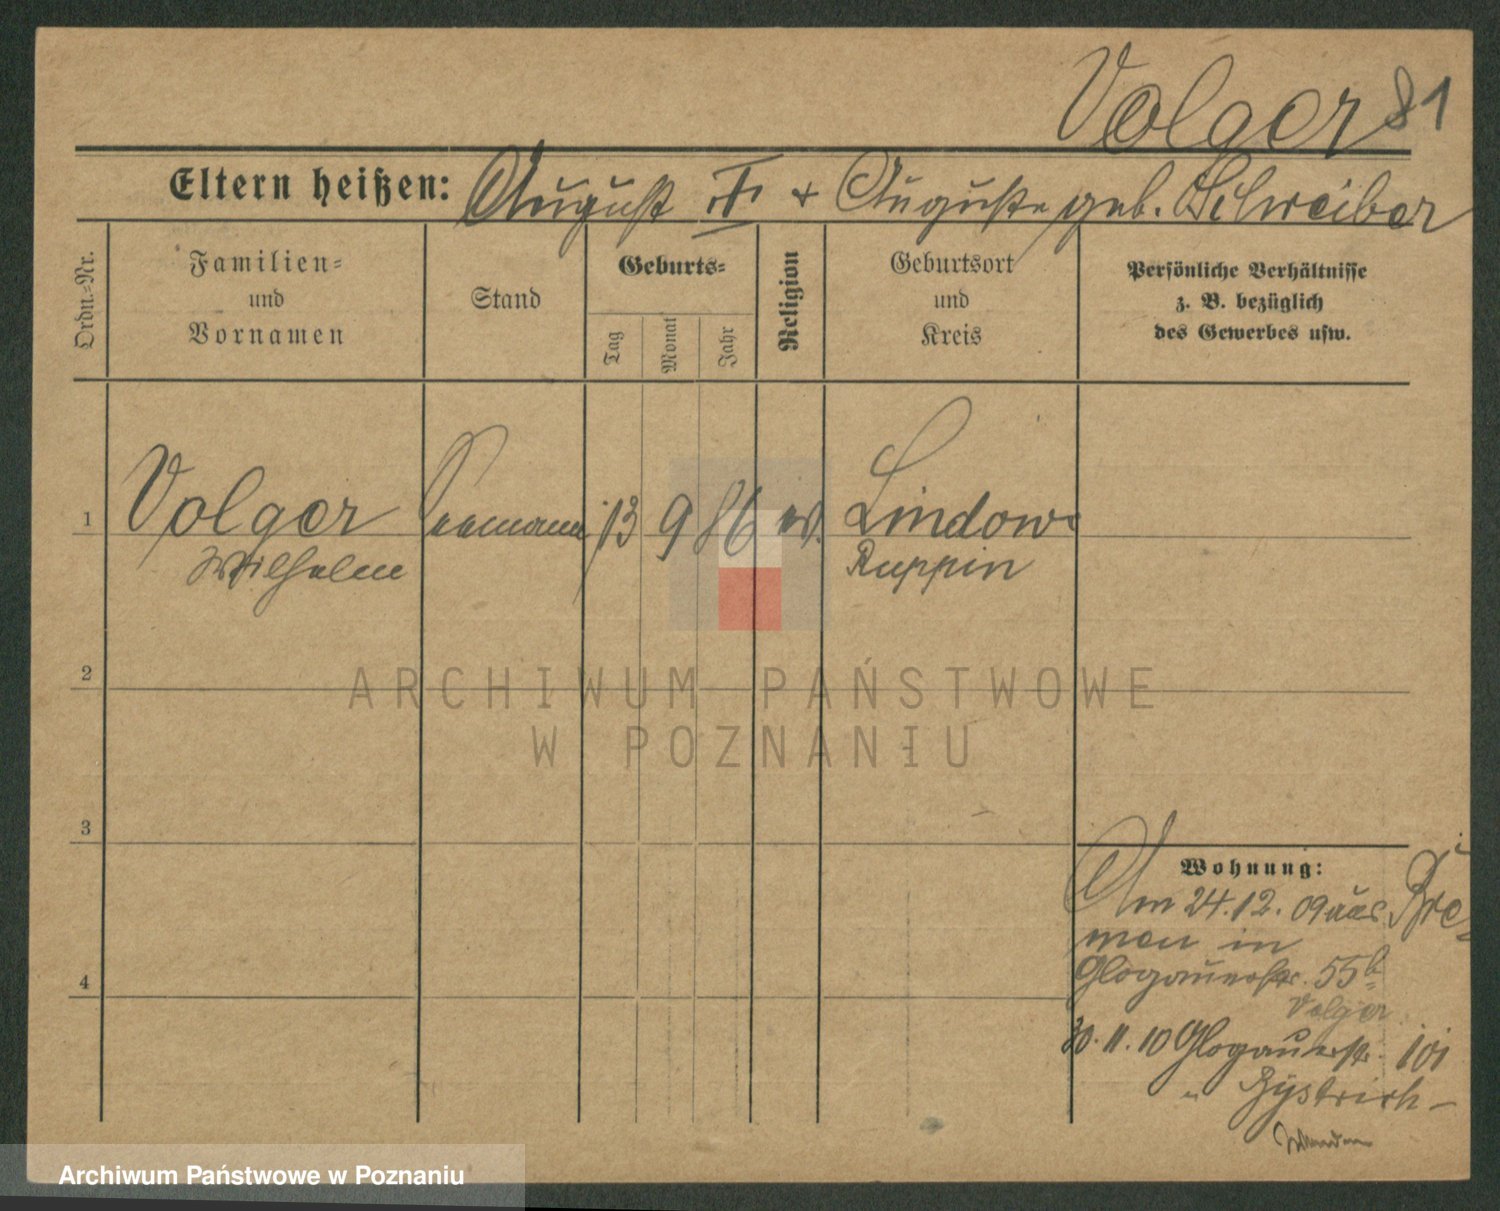 Volger 81
Eltern heißen: August + Auguste geb. Schreiber
Ordn.-Nr.
Familien-
und
Vornamen
Stand
Geburts-
Tag
Monat
Jahr
Religion
Geburtsort
und
Kreis
Persönliche Verhältnisse
z. B. bezüglich
des Gewerbes usw.
1 Volger Seemann 13 9 86 ev. Lindow
Wilhelm Ruppin
2
ARCHIWUM PAŃSTWOWE
W POZNANIU
3
Wohnung:
Am 24.12.09 aus Bre-
men in
4 Glogauerstr. 55b
Volger
30.11.10 Glogauerstr. 101
Archiwum Państwowe w Poznaniu